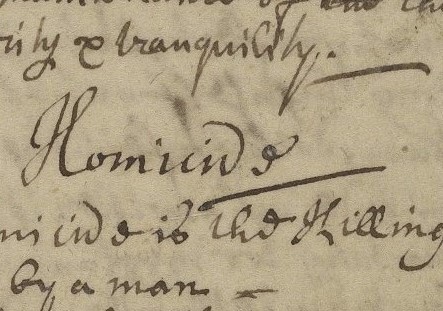 of the
rity & tranquility.
Homicide
micide is the Killing
by a man